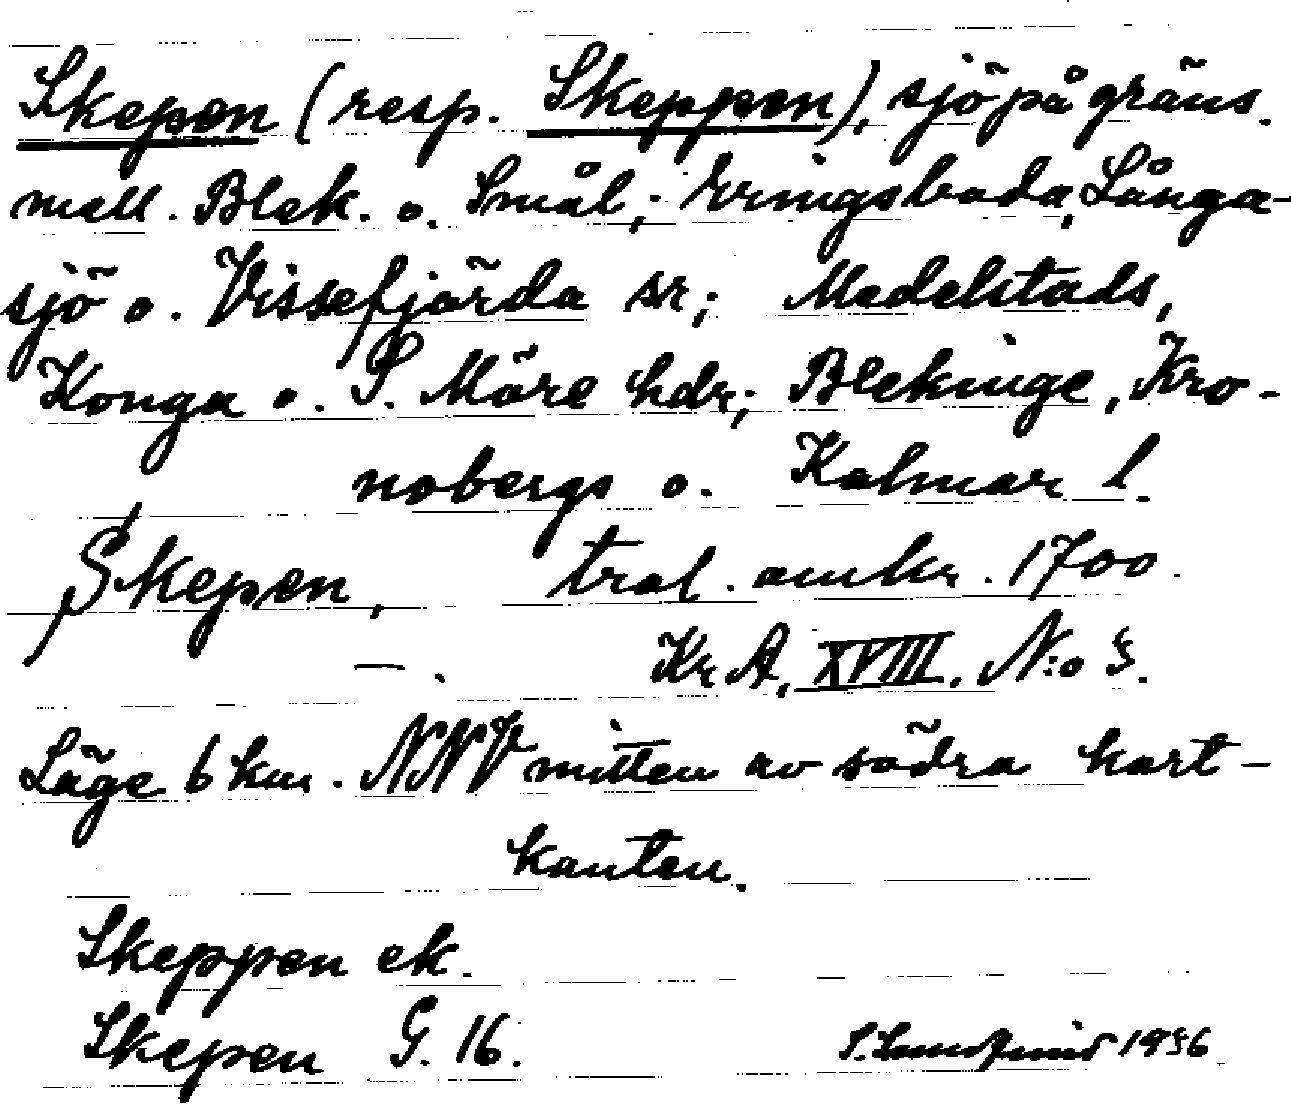 Skepen (resp. Skeppen), sjö på gräns.
mell. Blek. o. Smål.; Eringsboda, Långa-
sjö o. Vissefjärda sr; Medelstads,
Konga o. S. Möre hdr; Blekinge, Kro-
nobergs o. Kalmar l.
Skepen, trol. omkr. 1700.
—. Kr A, XVIII. N:o 3.
Läge 6 km. NNV mitten av södra kart-
kanten.
Skeppen ek.
Skepen G. 16.
1936